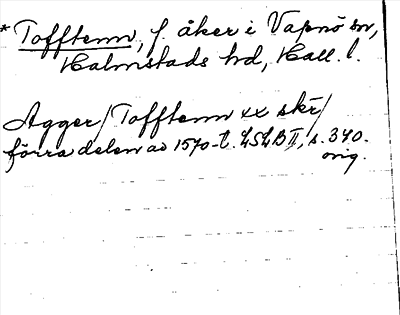 * Tofftenn, f. åker i Vapnö sn,
Halmstads hd, Hall. l.
Agger / Tofftenn xx skr /
förra delen av 1570-t. LSLB II, s. 340.
orig.